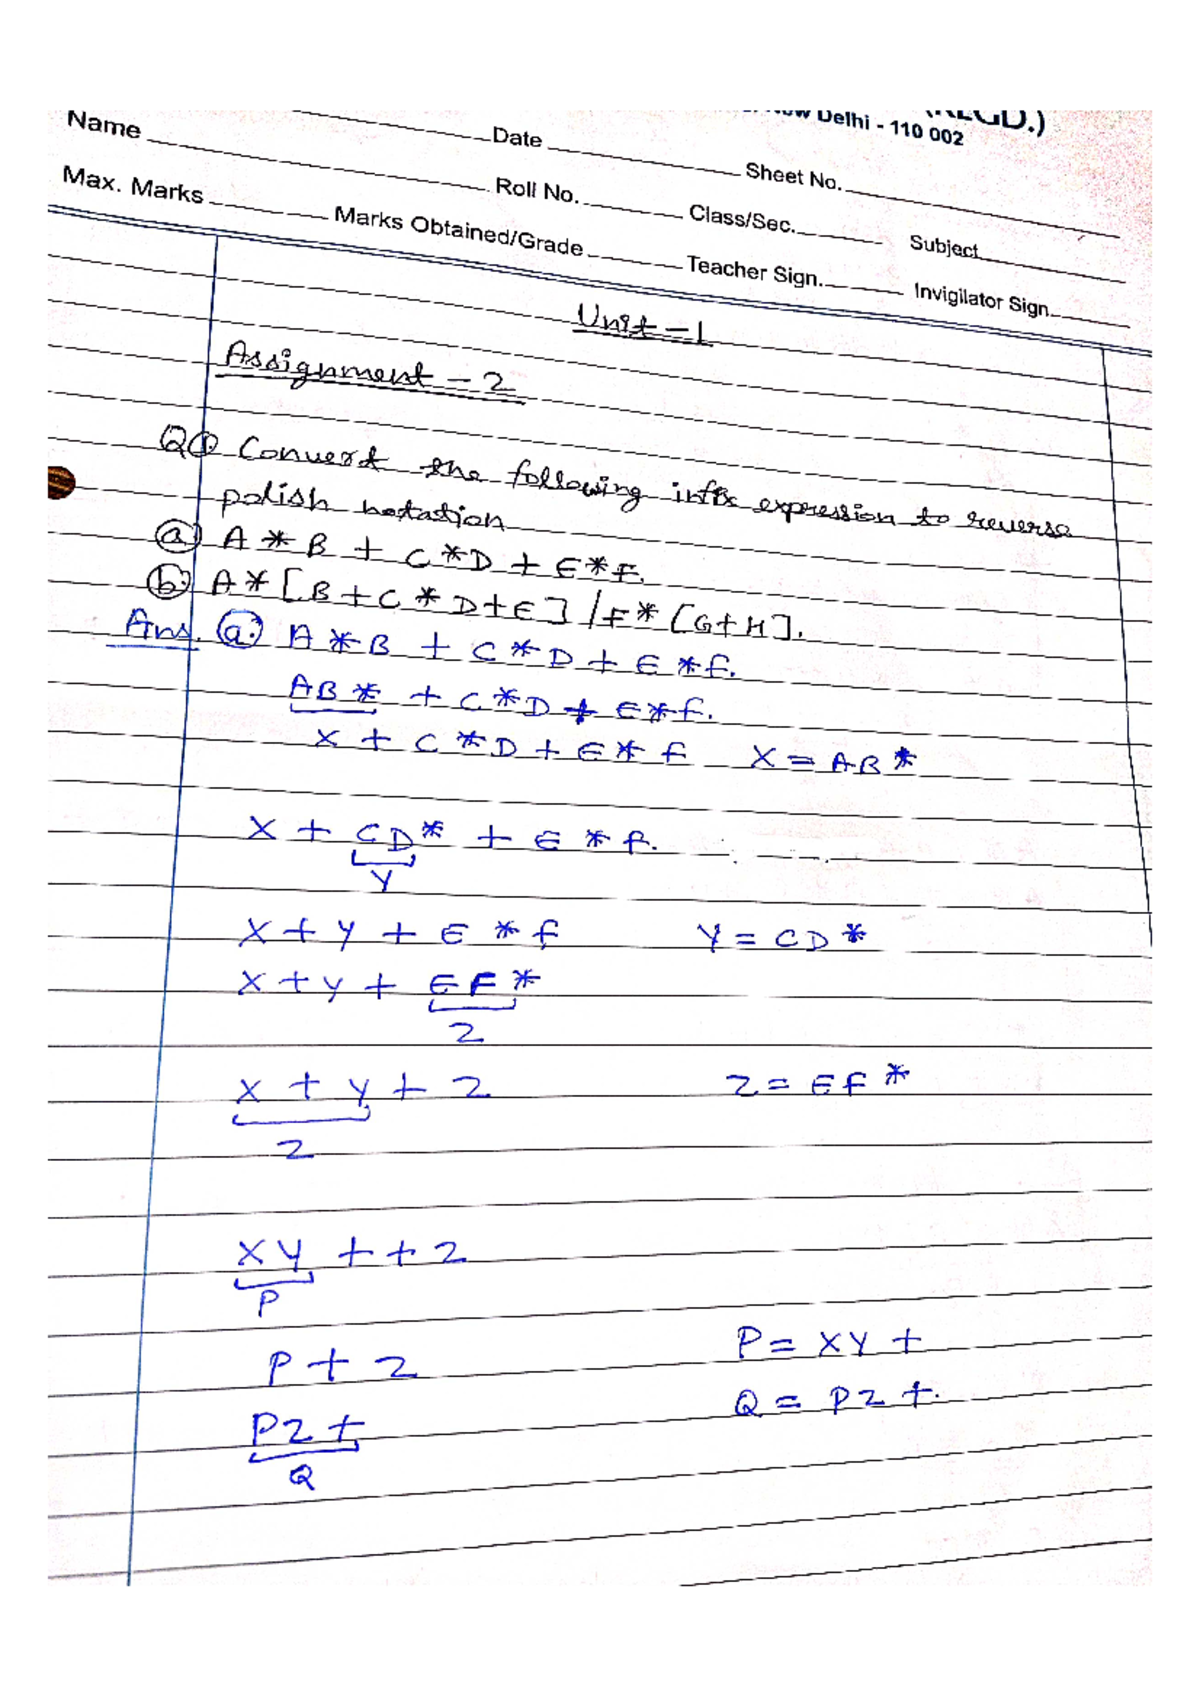 (REGD.)
New Delhi - 110 002
Name Date Sheet No.
Max. Marks Roll No. Class/Sec. Subject
Marks Obtained/Grade Teacher Sign. Invigilator Sign.
Unit - 1
Assignment - 2
Q① Convert the following infix expression to reverse
polish notation
(a) A * B + C * D + E * F.
(b.) A * [B + C * D + E] / F * [G + H].
Ans. (a.) A * B + C * D + E * F.
AB * + C * D + E * F.
X + C * D + E * F X = AB *
X + CD * + E * F.
Y
X + Y + E * F Y = CD *
X + Y + EF *
Z
X + Y + Z Z = EF *
Z
XY + + Z
P
P + Z P = XY +
PZ + Q = PZ +.
Q